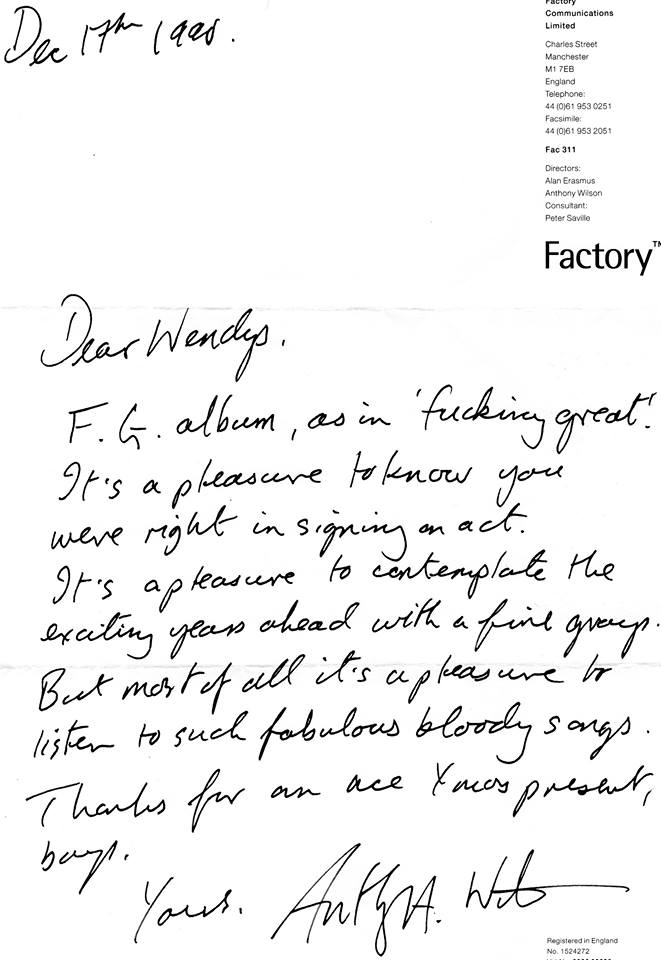 Dec 17th 1990.
Factory
Communications
Limited
Charles Street
Manchester
M1 7EB
England
Telephone:
44 (0)61 953 0251
Facsimile:
44 (0)61 953 2051
Fac 311
Directors:
Alan Erasmus
Anthony Wilson
Consultant:
Peter Saville
Factory™
Dear Wendys.
F.G. album, as in 'fucking great'.
It's a pleasure to know you
were right in signing an act.
It's a pleasure to contemplate the
exciting years ahead with a fine group.
But most of all it's a pleasure to
listen to such fabulous bloody songs.
Thanks for an ace Xmas present,
boys.
Yours.
Registered in England
No. 1524272